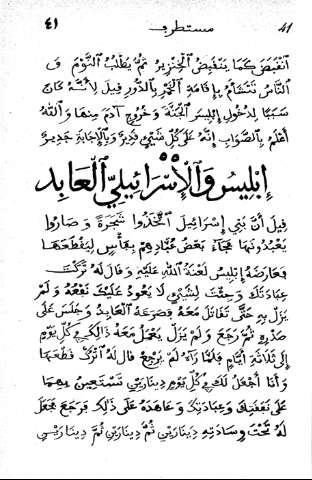 ٤١ مستطرف 41
انقبض كما ينقبض الخنزير ثم يطلب النوم و
الناس تتشاءم بإقامة الخمر بالدور قيل لأنه كان
سببا لدخول إبليس الجنة وخروج آدم منها والله
أعلم بالصواب إنه على كل شيء قدير وبالإجابة جدير
إبليس والإسرائيلي العابد
قيل أن بني إسرائيل اتخذوا شجرة وصاروا
يعبدونها فجاء بعض عبادهم بفأس ليقطعها
فعارضه إبليس لعنة الله عليه وقال له تركت
عبادتك وجئت لشيء لا يعود عليك نفعه ولم
يزل به حتى تقاتل معه فصرعه العابد وجلس على
صدره ثم رجع ولم يزل يعمل معه ذالك كل يوم
إلى ثلاثة أيام فلما رآه لم يرجع قال له اترك قطعها
وأنا أجعل لك كل يوم دينارين تستعين بهما
على نفقتك وعبادتك وعاهده على ذالك فرجع فجعل
له تحت وسادته دينارين ثم دينارين ثم دينارين